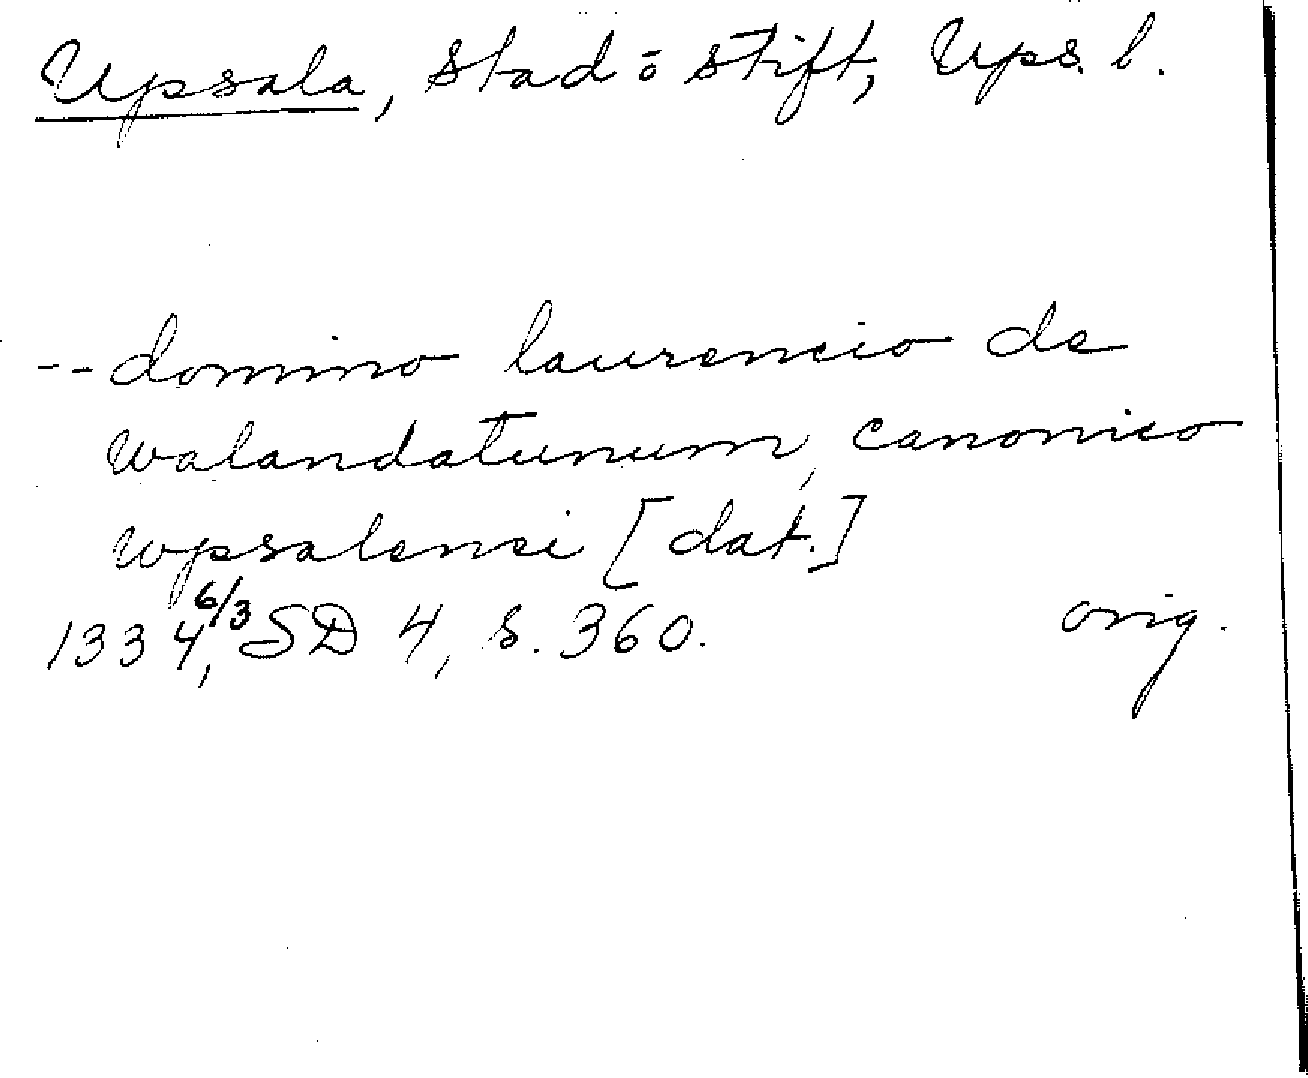 Upsala, stad o stift, Ups. l.
-- domino laurencio de
walandatunum, canonico
wpsalensi [dat.]
1334, 6/3 SD 4, s. 360. orig.